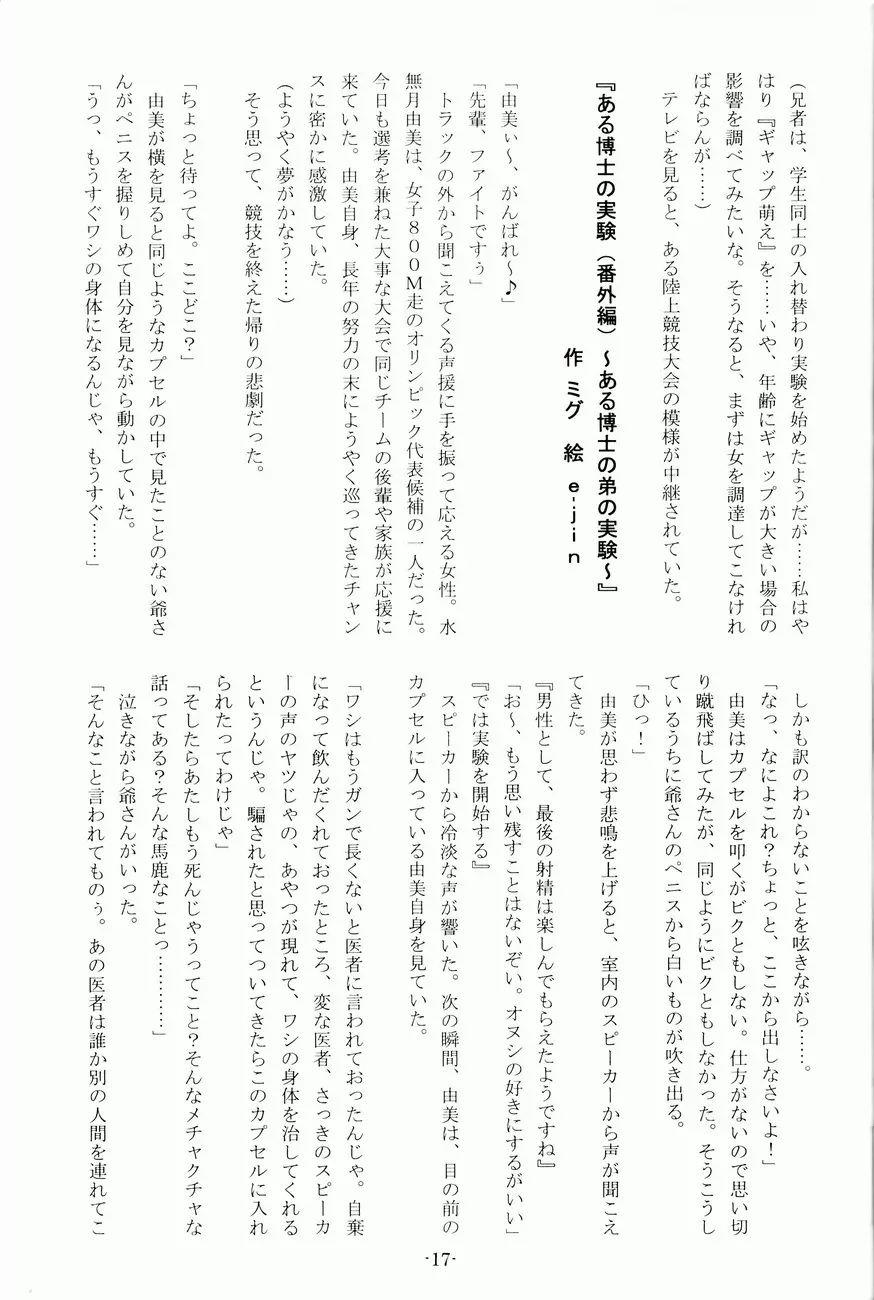 (兄者は、学生同士の入れ替わり実験を始めたようだが……私はや
はり『ギャップ萌え』を……いや、年齢にギャップが大きい場合の
影響を調べてみたいな。そうなると、まずは女を調達してこなけれ
ばならんが……)
テレビを見ると、ある陸上競技大会の模様が中継されていた。
『ある博士の実験(番外編)~ある博士の弟の実験~』
作 ミグ 絵 e-jin
「由美ぃ~、がんばれ~♪」
「先輩、ファイトですぅ」
トラックの外から聞こえてくる声援に手を振って応える女性。水
無月由美は、女子800M走のオリンピック代表候補の一人だった。
今日も選考を兼ねた大事な大会で同じチームの後輩や家族が応援に
来ていた。由美自身、長年の努力の末にようやく巡ってきたチャン
スに密かに感激していた。
(ようやく夢がかなう……)
そう思って、競技を終えた帰りの悲劇だった。
「ちょっと待ってよ。ここどこ?」
由美が横を見ると同じようなカプセルの中で見たことのない爺さ
んがペニスを握りしめて自分を見ながら動かしていた。
「うっ、もうすぐワシの身体になるんじゃ、もうすぐ……」
しかも訳のわからないことを呟きながら……。
「なっ、なによこれ?ちょっと、ここから出しなさいよ!」
由美はカプセルを叩くがビクともしない。仕方がないので思い切
り蹴飛ばしてみたが、同じようにビクともしなかった。そうこうし
ているうちに爺さんのペニスから白いものが吹き出る。
「ひっ!」
由美が思わず悲鳴を上げると、室内のスピーカーから声が聞こえ
てきた。
『男性として、最後の射精は楽しんでもらえたようですね』
「お~、もう思い残すことはないぞい。オヌシの好きにするがいい」
『では実験を開始する』
スピーカーから冷淡な声が響いた。次の瞬間、由美は、目の前の
カプセルに入っている由美自身を見ていた。
「ワシはもうガンで長くないと医者に言われておったんじゃ。自棄
になって飲んだくれておったところ、変な医者、さっきのスピーカ
ーの声のヤツじゃの、あやつが現れて、ワシの身体を治してくれる
というんじゃ。騙されたと思ってついてきたらこのカプセルに入れ
られたってわけじゃ」
「そしたらあたしもう死んじゃうってこと?そんなメチャクチャな
話ってある?そんな馬鹿なことっ…………」
泣きながら爺さんがいった。
「そんなこと言われてものぅ。あの医者は誰か別の人間を連れてこ
-17-